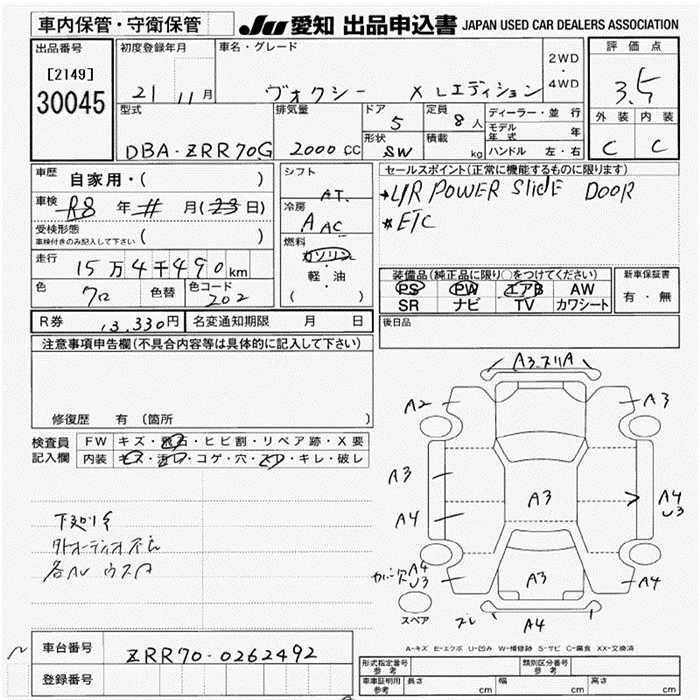 車内保管・守衛保管
JU 愛知 出品申込書 JAPAN USED CAR DEALERS ASSOCIATION
出品番号
[2149]
30045
初度登録年月
21 11月
車名・グレード
ヴォクシー X Lエディション
2WD
・
4WD
評価点
3.5
外装 内装
C C
型式
DBA-ZRR70G
排気量
2000 CC
ドア
5
形状
SW
定員
8人
積載
kg
ディーラー・並行
モデル年式 年
ハンドル 左・右
車歴 自家用・( )
車検 R8年 月(23日)
受検形態
車検付きのみ記入して下さい ( )
走行 15万4千490km
色 クロ 色替 色コード 202
シフト
AT.
冷房
A AC
燃料
ガソリン
・
軽・油
( )
セールスポイント(正常に機能するものに限ります)
L/R POWER SlidE DOOR
ETC
装備品(純正品に限り○をつけてください)
PS PW エアB AW
SR ナビ TV カワシート
新車保証書
有・無
R券 13,330円 名変通知期限 月 日
後日品
注意事項申告欄(不具合内容等は具体的に記入して下さい)
修復歴 有 (箇所 )
検査員記入欄
FW キズ・飛石・ヒビ割・リペア跡・X要
内装 キズ・汚レ・コゲ・穴・スレ・キレ・破レ
下廻り
オーディオ
各
A3.スリA
A2
A3
A3
A4
A3
A4
U3
A4
U3
A3
A4
A4
スペア
A-キズ E-エクボ U-凹み W-補修跡 S-サビ C-腐食 XX-交換済
車台番号 ZRR70-0262492
登録番号
形式指定番号 参考
類別区分番号 参考
車庫証明用 参考
長さ cm
幅 cm
高さ cm